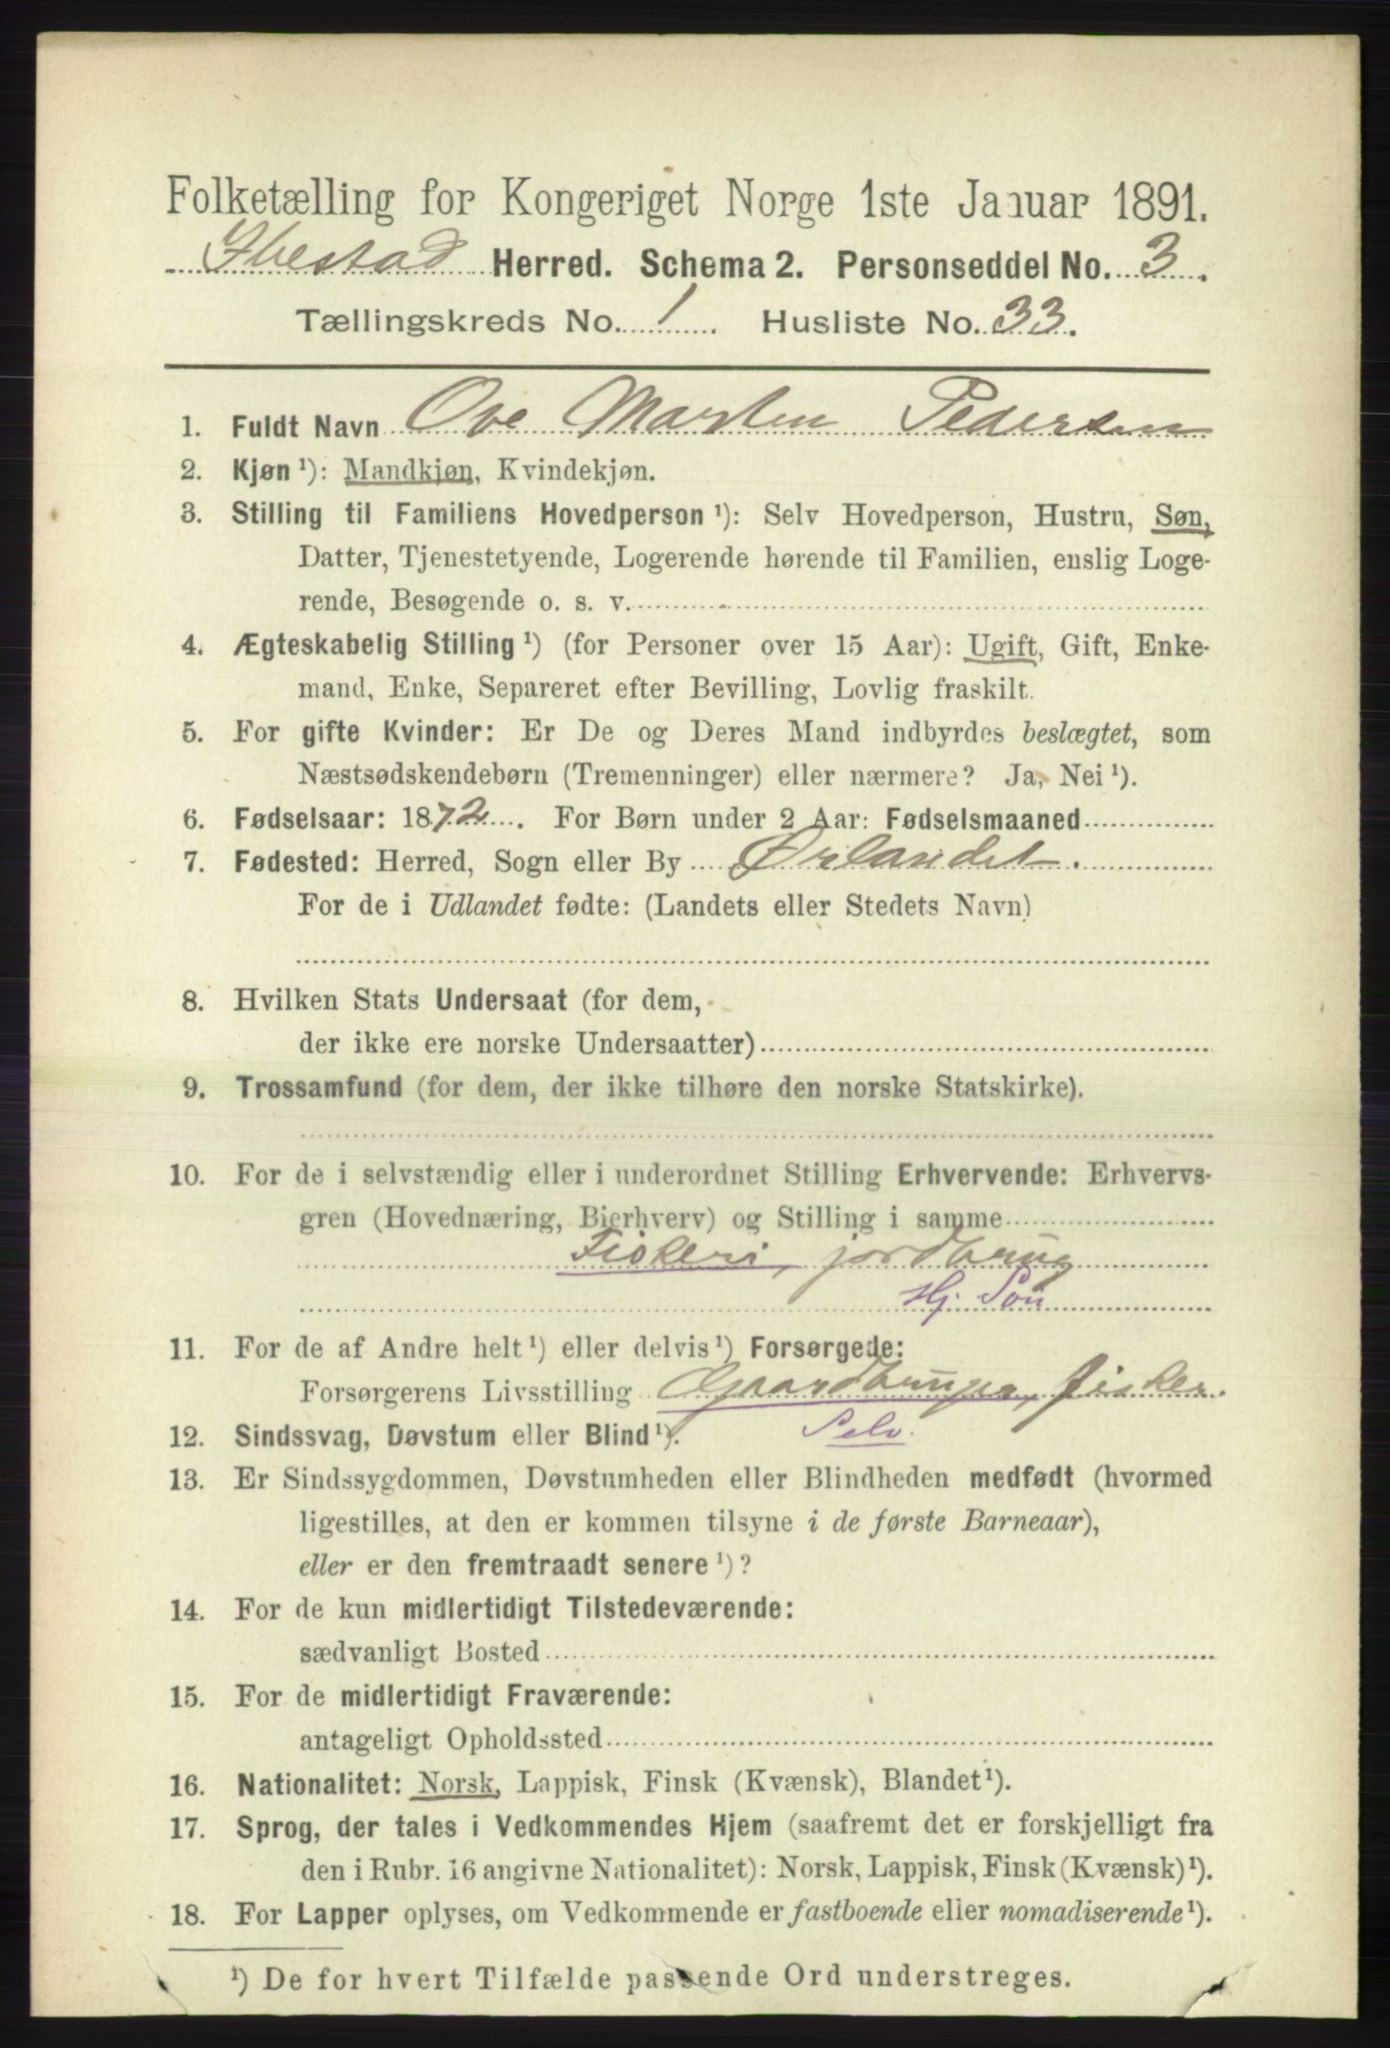 Folketælling for Kongeriget Norge 1ste Januar 1891.
Ibestad Herred. Schema 2. Personseddel No. 3.
Tællingskreds No. 1. Husliste No. 33.
1. Fuldt Navn Ove Marten Pedersen
2. Kjøn ¹): Mandkjøn, Kvindekjøn.
3. Stilling til Familiens Hovedperson ¹): Selv Hovedperson, Hustru, Søn,
Datter, Tjenestetyende, Logerende hørende til Familien, enslig Loge-
rende, Besøgende o. s. v.
4. Ægteskabelig Stilling ¹) (for Personer over 15 Aar): Ugift, Gift, Enke-
mand, Enke, Separeret efter Bevilling, Lovlig fraskilt.
5. For gifte Kvinder: Er De og Deres Mand indbyrdes beslægtet, som
Næstsødskendebørn (Tremenninger) eller nærmere? Ja, Nei ¹).
6. Fødselsaar: 1872. For Børn under 2 Aar: Fødselsmaaned
7. Fødested: Herred, Sogn eller By Ørlandet.
For de i Udlandet fødte: (Landets eller Stedets Navn)
8. Hvilken Stats Undersaat (for dem,
der ikke ere norske Undersaatter)
9. Trossamfund (for dem, der ikke tilhøre den norske Statskirke).
10. For de i selvstændig eller i underordnet Stilling Erhvervende: Erhvervs-
gren (Hovednæring, Bierhverv) og Stilling i samme
Fiskeri, jordbrug
Hj. Søn
11. For de af Andre helt ¹) eller delvis ¹) Forsørgede:
Forsørgerens Livsstilling Gaardbruger, fisker.
12. Sindssvag, Døvstum eller Blind ¹). Selv.
13. Er Sindssygdommen, Døvstumheden eller Blindheden medfødt (hvormed
ligestilles, at den er kommen tilsyne i de første Barneaar),
eller er den fremtraadt senere ¹)?
14. For de kun midlertidigt Tilstedeværende:
sædvanligt Bosted
15. For de midlertidigt Fraværende:
antageligt Opholdssted
16. Nationalitet: Norsk, Lappisk, Finsk (Kvænsk), Blandet ¹).
17. Sprog, der tales i Vedkommendes Hjem (saafremt det er forskjelligt fra
den i Rubr. 16 angivne Nationalitet): Norsk, Lappisk, Finsk (Kvænsk) ¹).
18. For Lapper oplyses, om Vedkommende er fastboende eller nomadiserende ¹).
¹) De for hvert Tilfælde passende Ord understreges.